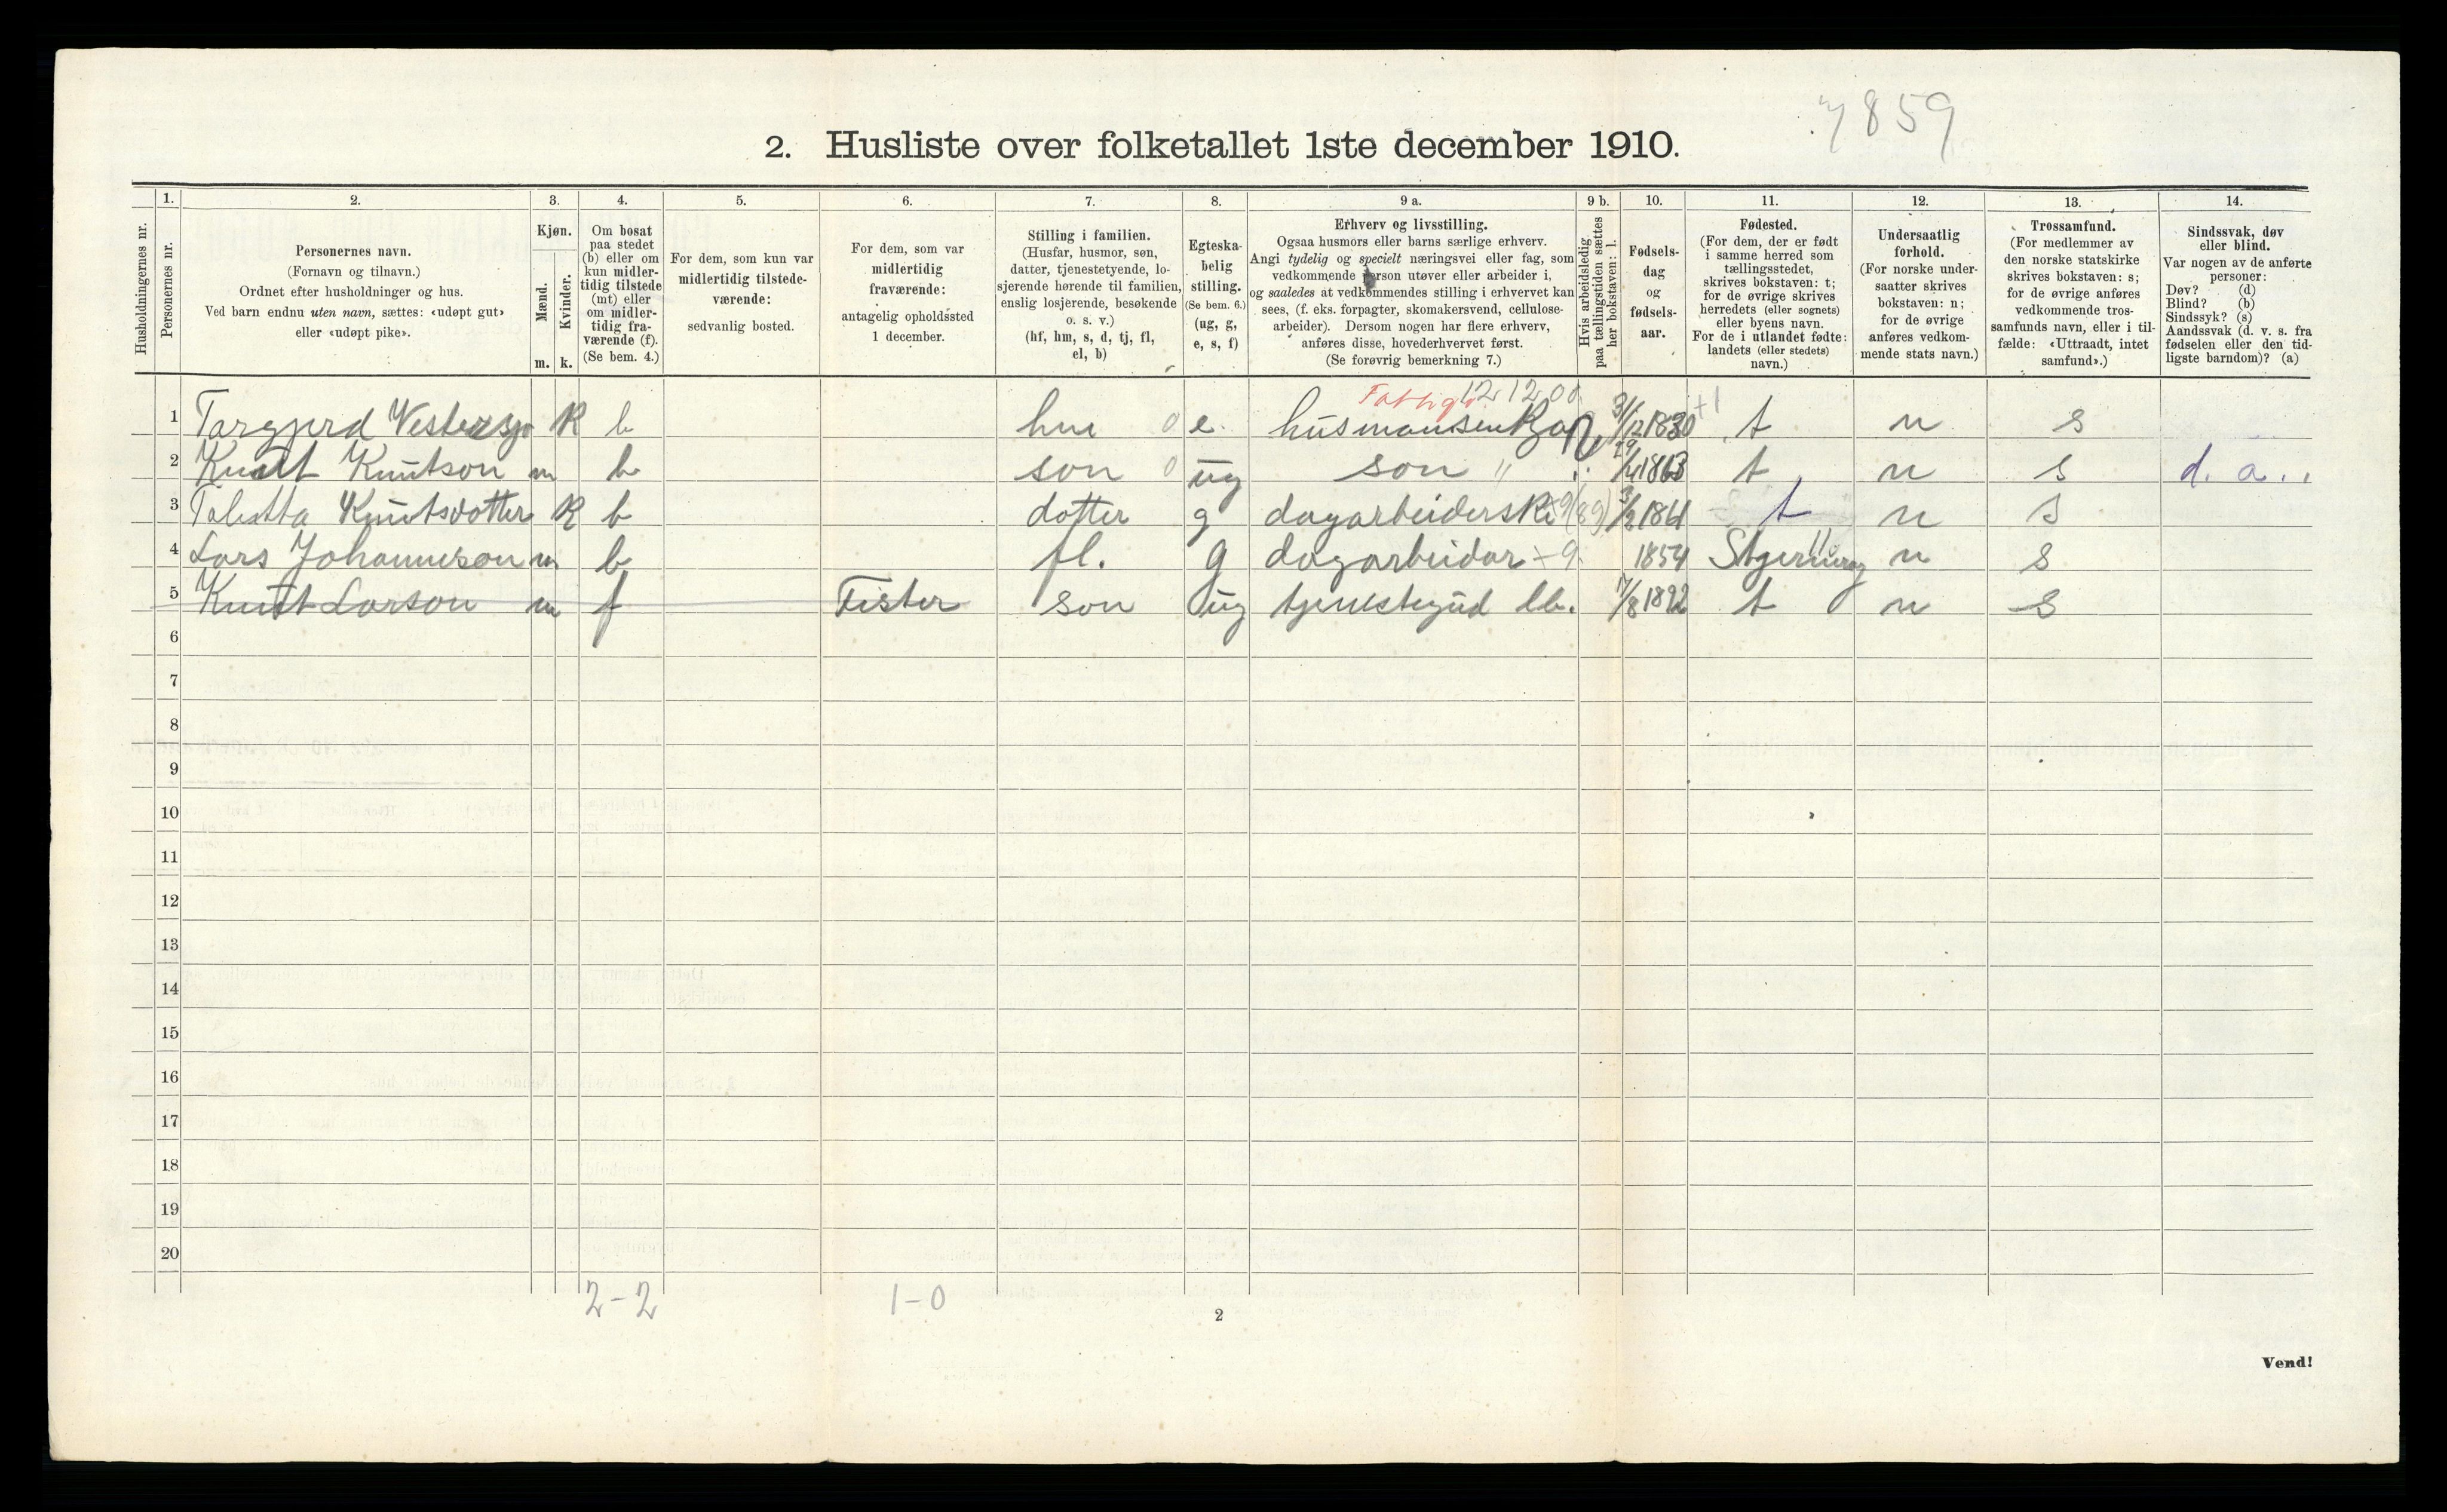 7859
2. Husliste over folketallet 1ste december 1910.
1. 2. 3. 4. 5. 6. 7. 8. 9 a. 9 b. 10. 11. 12. 13. 14.
Husholdningernes nr.
Personernes nr.
Personernes navn.
(Fornavn og tilnavn.)
Ordnet efter husholdninger og hus.
Ved barn endnu uten navn, sættes: «udøpt gut»
eller «udøpt pike».
Kjøn.
Mænd.
Kvinder.
m. k.
Om bosat
paa stedet
(b) eller om
kun midler-
tidig tilstede
(mt) eller
om midler-
tidig fra-
værende (f).
(Se bem. 4.)
For dem, som kun var
midlertidig tilstede-
værende:
sedvanlig bosted.
For dem, som var
midlertidig
fraværende:
antagelig opholdssted
1 december.
Stilling i familien.
(Husfar, husmor, søn,
datter, tjenestetyende, lo-
sjerende hørende til familien,
enslig losjerende, besøkende
o. s. v.)
(hf, hm, s, d, tj, fl,
el, b)
Egteska-
belig
stilling.
(Se bem. 6.)
(ug, g,
e, s, f)
Erhverv og livsstilling.
Ogsaa husmors eller barns særlige erhverv.
Angi tydelig og specielt næringsvei eller fag, som
vedkommende person utøver eller arbeider i,
og saaledes at vedkommendes stilling i erhvervet kan
sees, (f. eks. forpagter, skomakersvend, cellulose-
arbeider). Dersom nogen har flere erhverv,
anføres disse, hovederhvervet først.
(Se forøvrig bemerkning 7.)
Hvis arbeidsledig
paa tællingstiden sættes
her bokstaven: l.
Fødsels-
dag
og
fødsels-
aar.
Fødested.
(For dem, der er født
i samme herred som
tællingsstedet,
skrives bokstaven: t;
for de øvrige skrives
herredets (eller sognets)
eller byens navn.
For de i utlandet fødte:
landets (eller stedets)
navn.)
Undersaatlig
forhold.
(For norske under-
saatter skrives
bokstaven: n;
for de øvrige
anføres vedkom-
mende stats navn.)
Trossamfund.
(For medlemmer av
den norske statskirke
skrives bokstaven: s;
for de øvrige anføres
vedkommende tros-
samfunds navn, eller i til-
fælde: «Uttraadt, intet
samfund».)
Sindssvak, døv
eller blind.
Var nogen av de anførte
personer:
Døv? (d)
Blind? (b)
Sindssyk? (s)
Aandssvak (d. v. s. fra
fødselen eller den tid-
ligste barndom)? (a)
1 K b 0 e. 1830 t n s
2 Knut Knutson m b son 0 ug son " 1863 t n s d. a.
3 Knutsdotter K b dotter g 3/2 t n s
4 Lars Johanneson m b fl. g dagarbeidar 1854 n s
5 Knut Larson m f Fister son ug 17/8 1892 t n s
6
7
8
9
10
11
12
13
14
15
16
17
18
19
20
2-2 1-0
2
Vend!